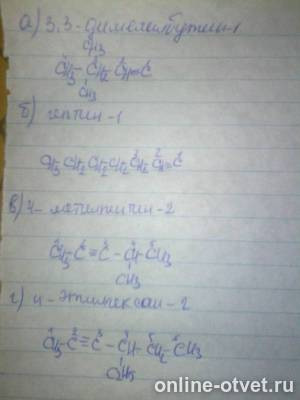 а) 3,3-диметилбутин-1
CH3
CH3-CH2-CH=C
CH3
б) гептин-1
CH3-CH2-CH2-CH2-CH2-CH=C
в) 4-метилпентин-2
CH3-C≡C-CH-CH3
CH3
г) 4-этилгексин-2
CH3-C≡C-CH-CH2-CH3
CH3
online-otvet.ru